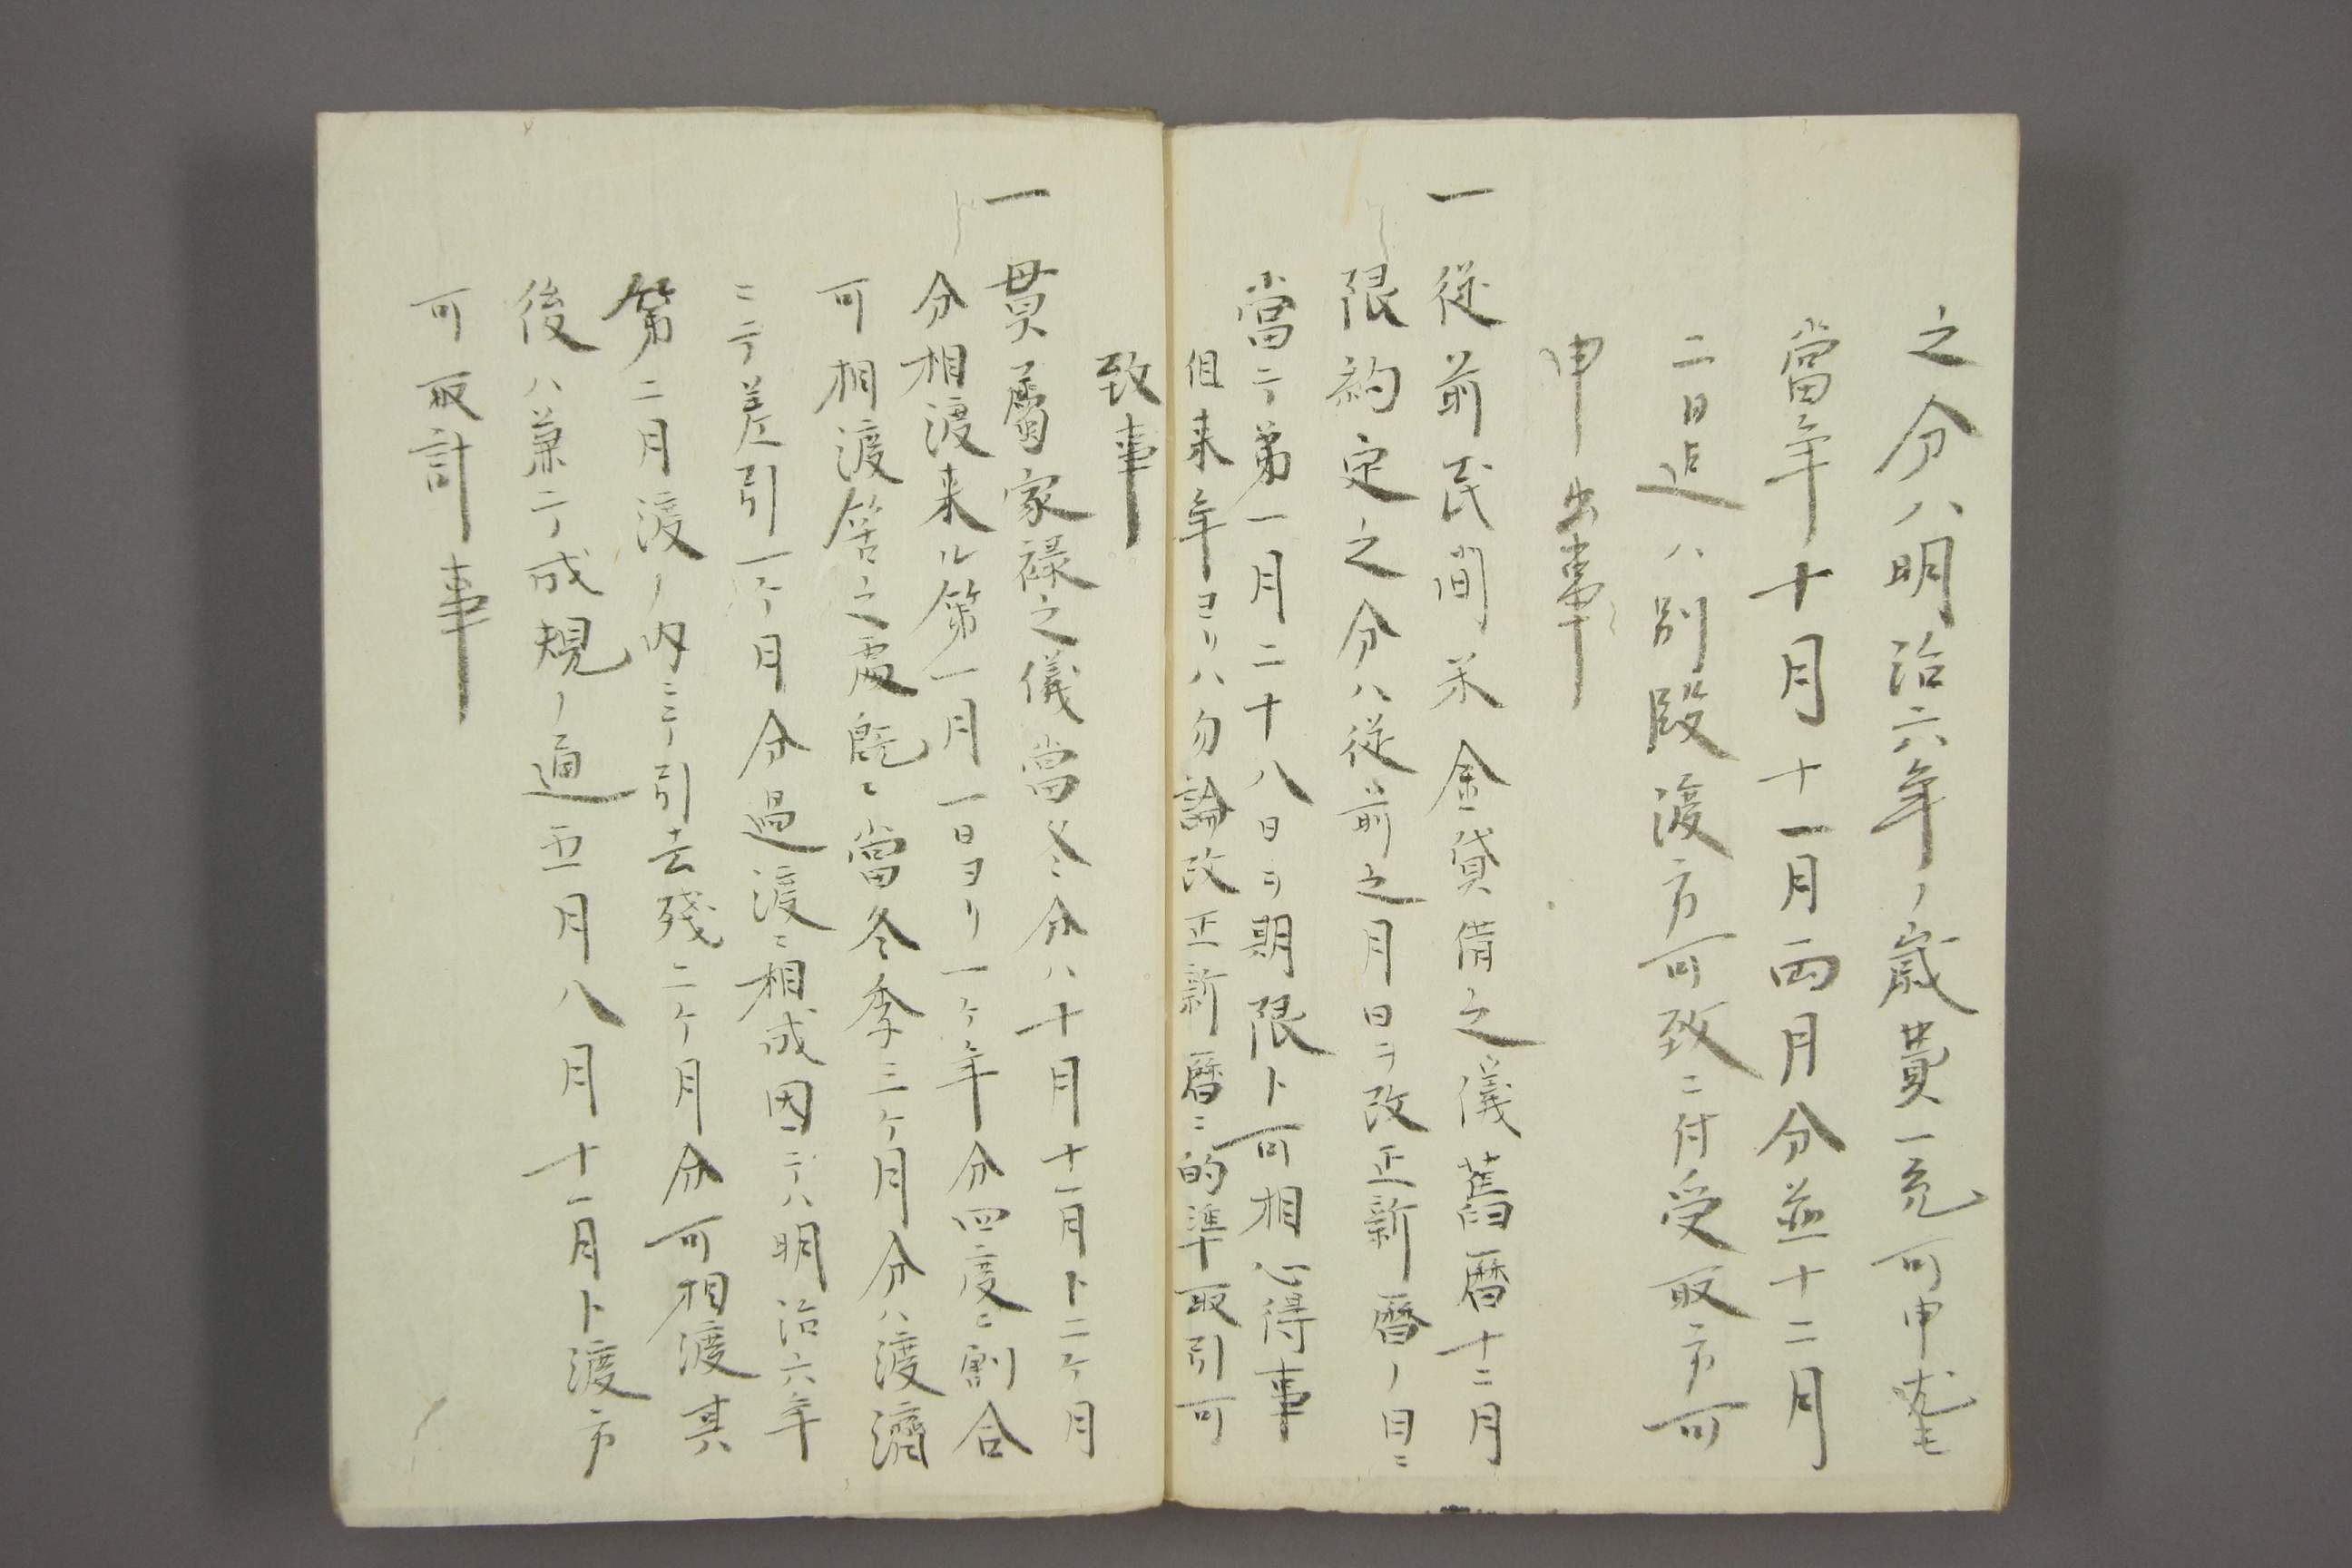 之分ハ明治六年ノ歳費一充可申尤モ
當年十月十一月両月分並十二月
二日迠ハ別段渡方可致ニ付受取方可
申出事
一従前民間米金貸借之儀舊暦十二月
限約定之分ハ従前之月日ヲ改正新暦ノ目ニ
當テ第一月二十八日ヲ期限ト可相心得事
但来年ヨリハ勿論改正新暦ニ的準取引可
致事
一貫属家禄之儀當冬分ハ十月十一月ト二ケ月
分相渡来ル第一月一日ヨリ一ケ年分四度ニ割合
可相渡筈之處既ニ當冬季三ケ月分ハ渡濟
ニテ差引一ケ月分過渡ニ相成因テハ明治六年
第二月渡ノ内ニテ引去残二ケ月分可相渡其
後ハ兼テ成規ノ通五月八月十一月ト渡方
可取計事